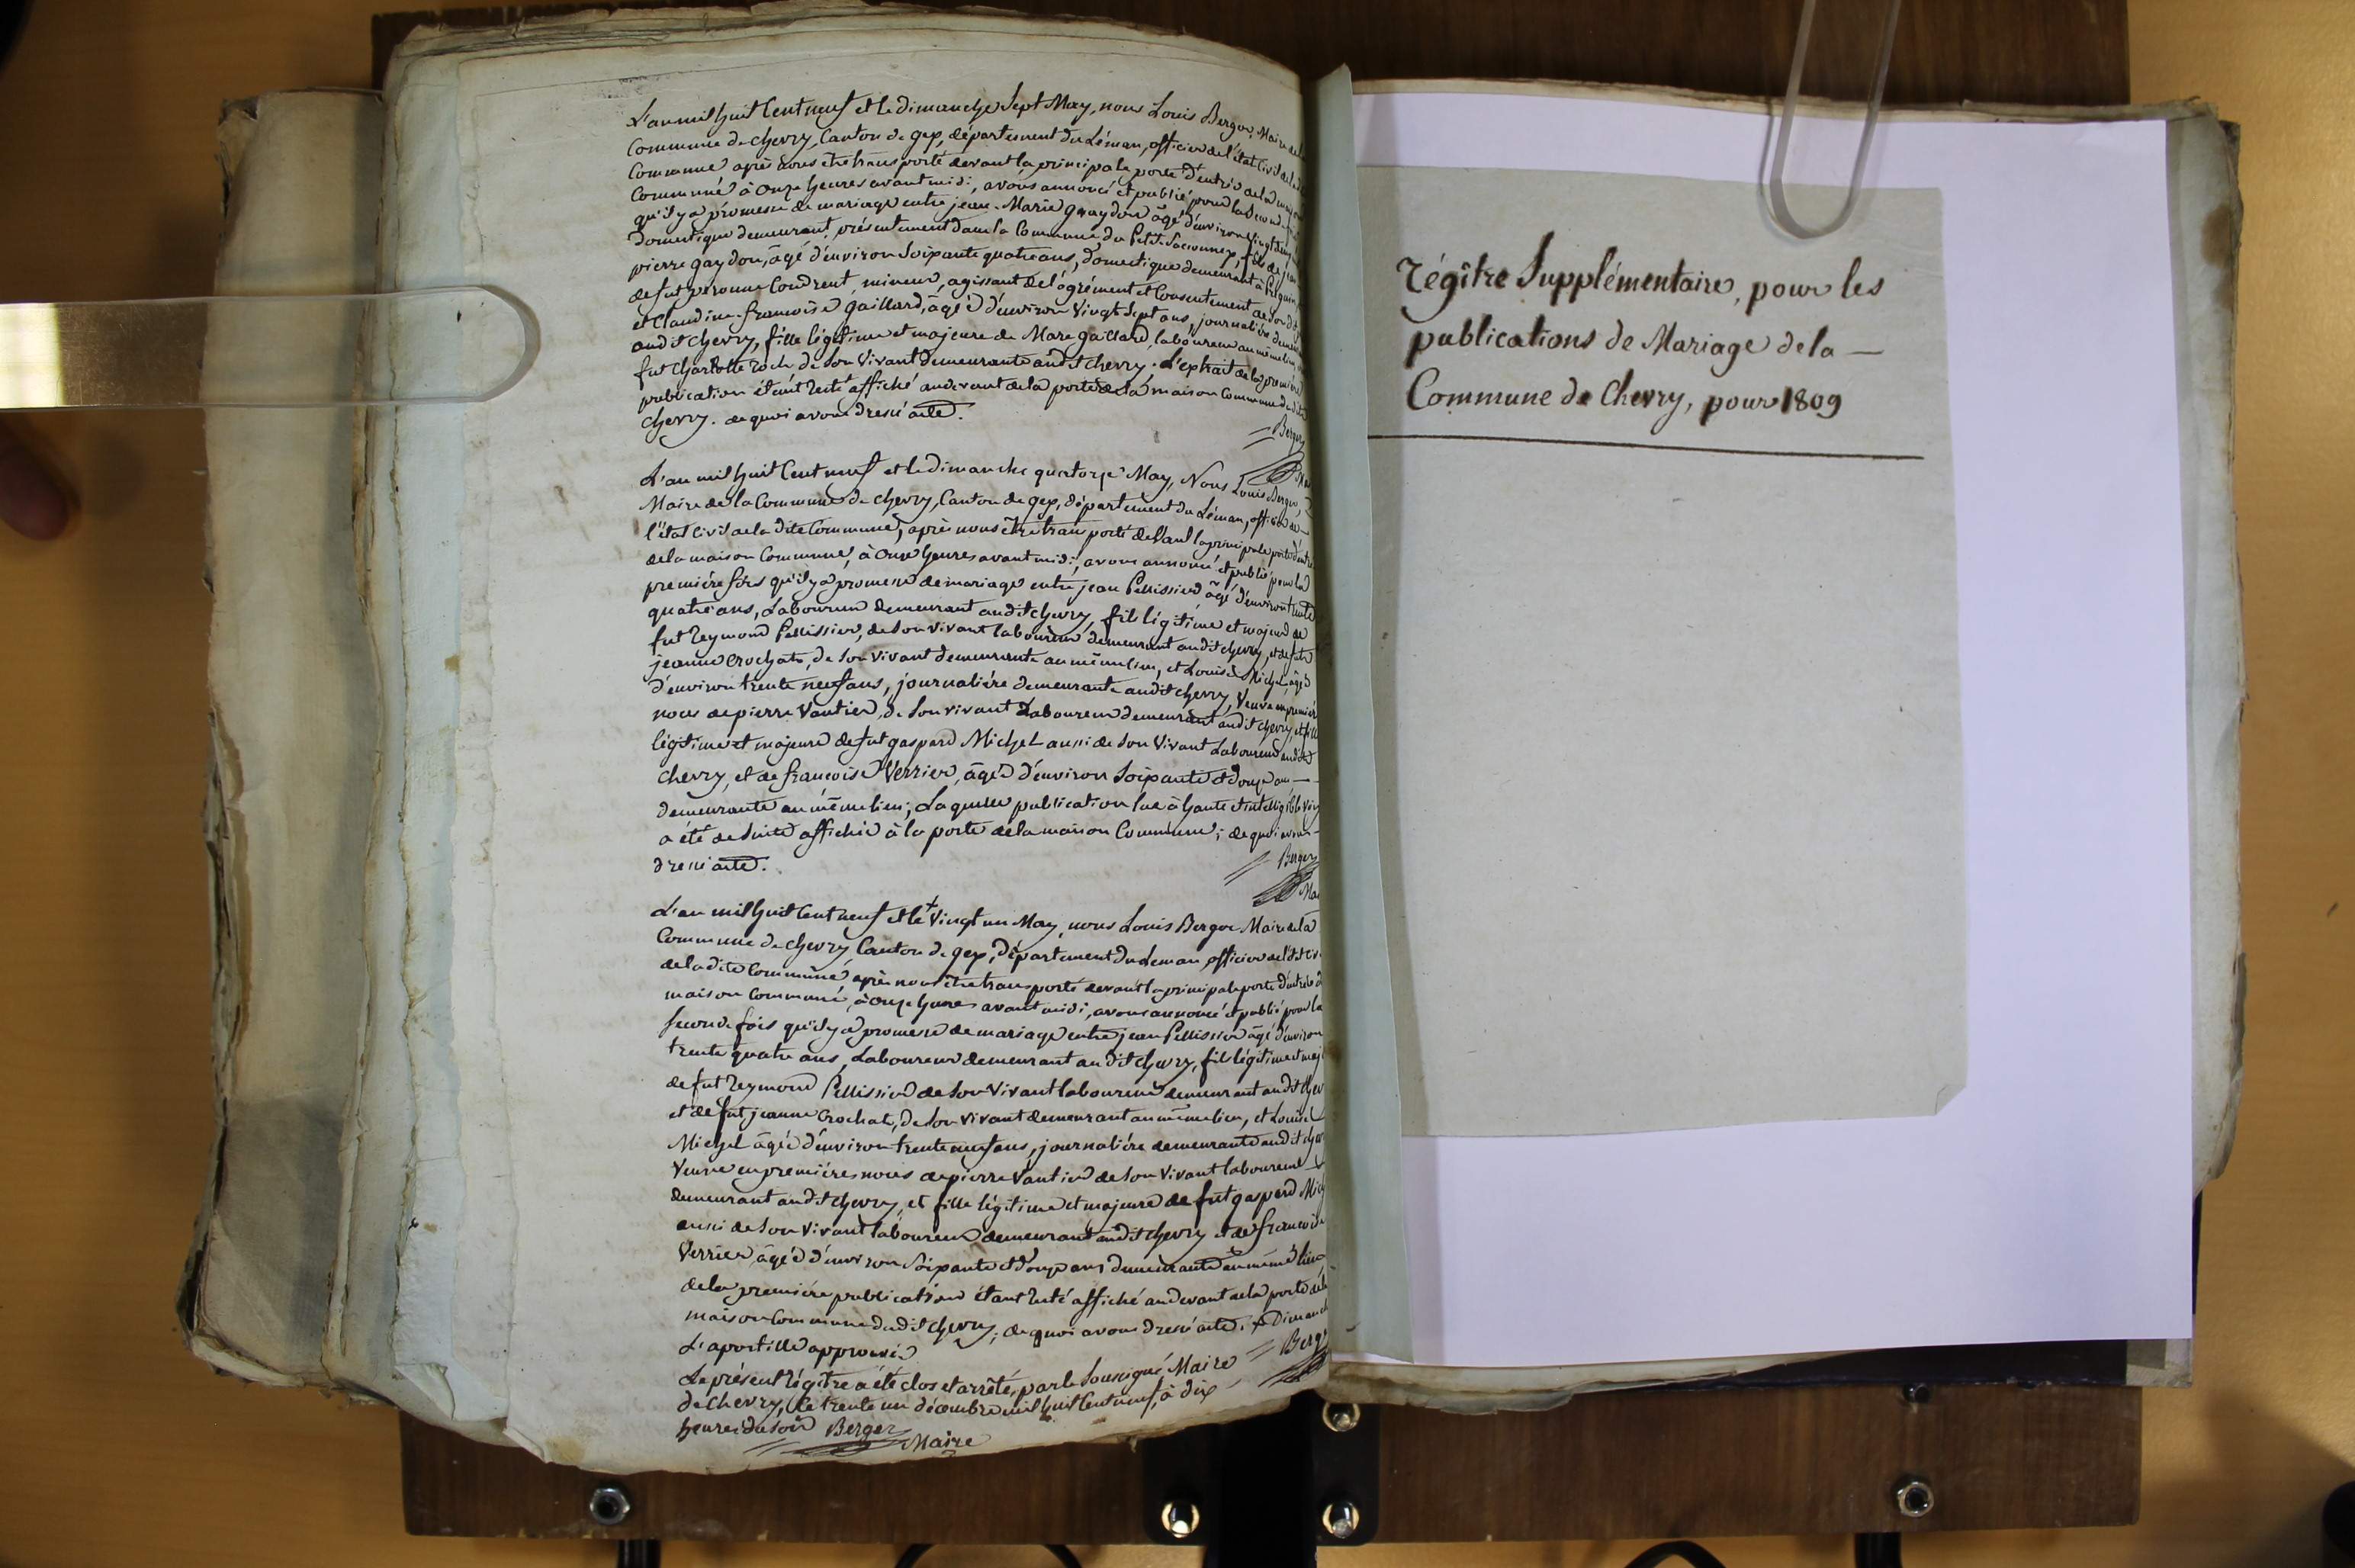 L'an mil huit Cent neuf et le dimanche Sept May, nous Louis Berger, Maire de la
Commune de Chevry, Canton de gex, département du Léman, officier de l'état Civil de la
Commune après nous être transporté devant la principale porte d'entrée de la maison
Commune à onze heures avant midi, avons annoncé et publié pour la Seconde
qu'il y a promesse de mariage entre jean-Marie gaydon âgé d'environ Vingt
Domestique demeurant présentement dans la Commune du Petit-Saconnex, fils de jean
pierre gaydon, âgé d'environ Soixante quatre ans, domestique demeurant à
defut peronne Coudrent, mineur, agissant de l'agrément et Consentement de son dit
et Claudine-françoise gaillard, âgée d'environ Vingt Sept ans, journalière demeu
audit Chevry, fille légitime et majeure de Marc gaillard, laboureur au même lieu
fut Charlotte roch de Son Vivant demeurante audit Chevry. L'extrait de la première
publication étant resté affiché au devant de la porte de la maison Commune dudit
Chevry. de quoi avons dressé acte.
Berger
L'an mil huit Cent neuf et le dimanche quatorze May, Nous Louis Berger,
Maire de la Commune de Chevry, Canton de gex, département du Léman, officier de
l'état Civil de la dite Commune, après nous être transporté devant la principale porte d'entrée
de la maison Commune, à onze heures avant midi, avons annoncé et publié pour la
première fois qu'il y a promesse de mariage entre jean Pellissier âgé d'environ trente
quatre ans, Laboureur demeurant audit Chevry, fils légitime et majeur de
fut reymond Pellissier, de Son vivant laboureur demeurant audit Chevry, et de fute
jeanne Crochat, de Son Vivant demeurante au même lieu, et Louise Michel, âgée
d'environ trente neuf ans, journalière demeurante audit Chevry, Veuve en première
noces de pierre Vautier, de Son vivant Laboureur demeurant audit Chevry, et fille
légitime et majeure defut gaspard Michel aussi de Son Vivant Laboureur audit
Chevry, et de françoise Verrier, âgée d'environ Soixante et douze ans
demeurante au même lieu; Laquelle publication lue à haute et intelligible voix
a été de Suite affichée à la porte de la maison Commune; de quoi avons
dressé acte.
Berger
Mai
L'an mil huit Cent neuf et le + Vingt un May, nous Louis Berger Maire de la
Commune de Chevry Canton de gex, département du Léman officier de l'état Civ
de la dite Commune, après nous être transporté devant la principale porte d'entrée d
maison Commune, à onze heures avant midi, avons annoncé et publié pour la
Seconde fois qu'il y a promesse de mariage entre jean Pellissier âgé d'environ
trente quatre ans, Laboureur demeurant audit Chevry, fils légitime et maj
defut reymond Pellissier de Son Vivant laboureur demeurant audit Chev
et de fut jeanne Crochat, de Son vivant demeurant au même lieu, et Louise
Michel âgée d'environ trente neuf ans, journalière demeurante audit Chev
Veuve en premières noces de pierre Vautier de Son Vivant laboureur
demeurant audit Chevry, et fille légitime et majeure de fut gaspard Mic
aussi de Son Vivant laboureur demeurant audit Chevry et de françoise
Verrier âgée d'environ Soixante et douze ans demeurante au même lieu
de la première publication étant resté affiché au devant de la porte de la
maison Commune dudit Chevry; de quoi avons dressé acte. + Dimanch
L'apostille approuvée
Berg
Le présent régitre a été clos et arrêté, par le Soussigné, Maire
de Chevry, le trente un décembre mil huit Cent neuf, à dix
heures du Soir Berger
Maire
régître Supplémentaire, pour les
publications de Mariage de la —
Commune de Chevry, pour 1809